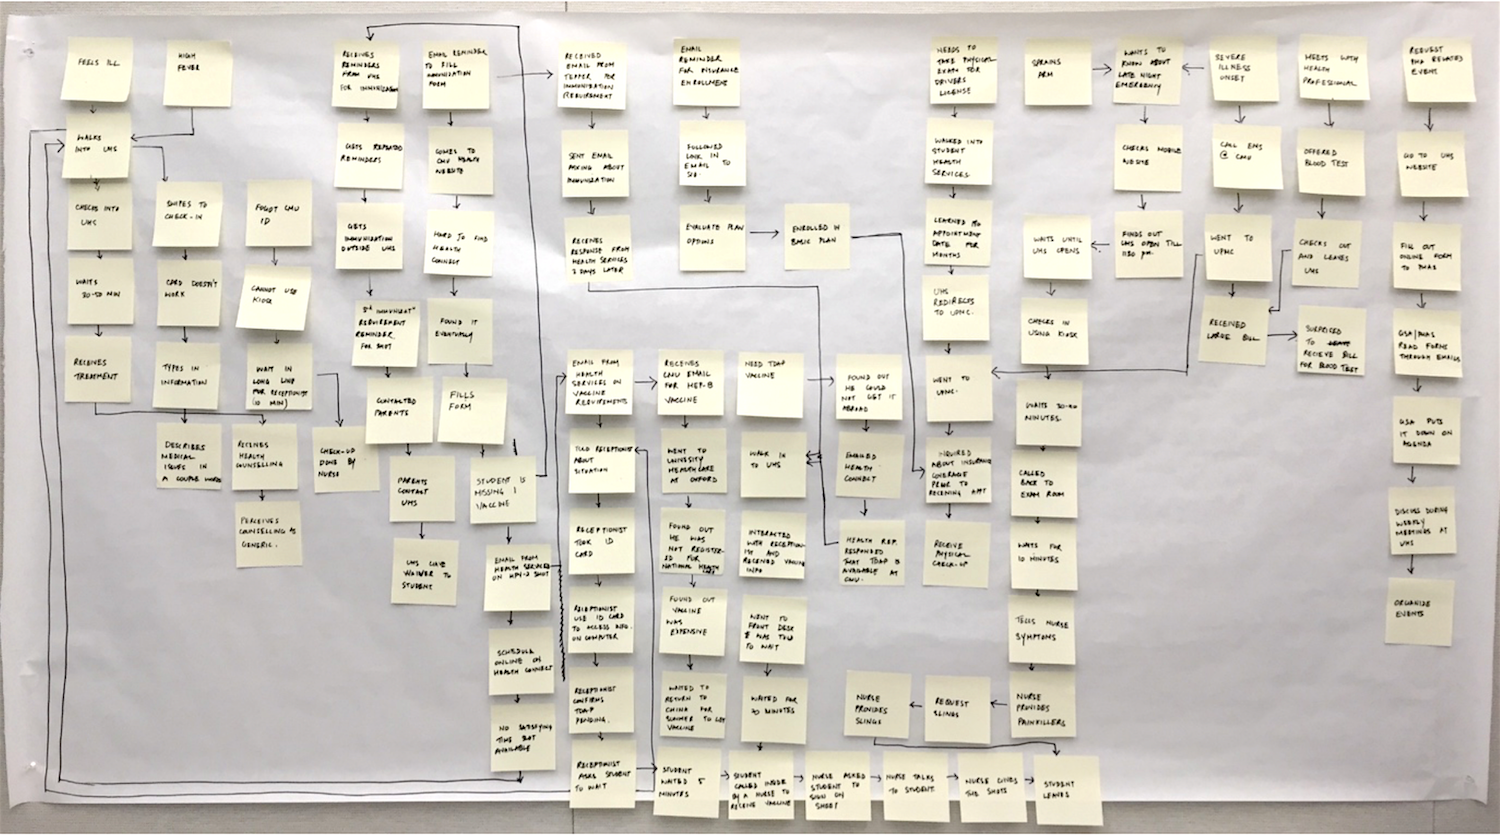 FEELS ILL
HIGH
FEVER
WALKS
INTO UHS
CHECKS INTO
UHS
WAITS
20-50 MIN
RECEIVES
TREATMENT
SWIPES TO
CHECK-IN
CARD DOESN'T
WORK
TYPES IN
INFORMATION
DESCRIBES
MEDICAL
ISSUES IN
A COUPLE WORDS
FOGOT CMU
ID
CANNOT USE
KIOSK
WAIT IN
LONG LINE
FOR RECEPTIONIST
(10 MIN)
RECEIVES
HEALTH
COUNSELLING
PERCEIVES
COUNSELLING AS
GENERIC.
CHECK-UP
DONE BY
NURSE
RECEIVES
REMINDERS
FROM UHS
FOR IMMUNIZATION
GETS REPEATED
REMINDERS
GETS
IMMUNIZATION
OUTSIDE UHS
IMMUNIZAT'
REQUIREMENT
REMINDER
FOR SHOT
CONTACTED
PARENTS
PARENTS
CONTACT
UHS
UHS GIVE
WAIVER TO
STUDENT
EMAIL REMINDER
TO FILL
IMMUNIZATION
FORM
COMES TO
CMU HEALTH
WEBSITE
HARD TO FIND
HEALTH
CONNECT
FOUND IT
EVENTUALLY
FILLS
FORM
STUDENT IS
MISSING 1
VACCINE
EMAIL FROM
HEALTH SERVICES
ON HPV-2 SHOT
SCHEDULE
ONLINE ON
HEALTH CONNECT
NO SATISFYING
TIME SLOT
AVAILABLE
RECEIVED
EMAIL FROM
TEPPER FOR
IMMUNIZATION
REQUIREMENT
SENT EMAIL
ASKING ABOUT
IMMUNIZATION
RECEIVES
RESPONSE FROM
HEALTH SERVICES
2 DAYS LATER
EMAIL
REMINDER
FOR INSURANCE
ENROLLMENT
FOLLOWED
LINK IN
EMAIL TO
SIO.
EVALUATE PLAN
OPTIONS
ENROLLED IN
BASIC PLAN
EMAIL FROM
HEALTH
SERVICES ON
VACCINE
REQUIREMENTS
TOLD RECEPTIONIST
ABOUT
SITUATION
RECEPTIONIST
TOOK ID
CARD
RECEPTIONIST
USE ID CARD
TO ACCESS INFO.
ON COMPUTER
RECEPTIONIST
CONFIRMS
TDAP
PENDING.
RECEPTIONIST
ASKS STUDENT
TO WAIT
RECEIVES
CMU EMAIL
FOR HEP-B
VACCINE
WENT TO
UNIVERSITY
HEALTHCARE
AT OXFORD
FOUND OUT
HE WAS
NOT REGISTER-
ED FOR
NATIONAL HEALTH
FOUND OUT
VACCINE
WAS
EXPENSIVE
WAITED TO
RETURN TO
CHINA FOR
SUMMER TO GET
VACCINE
STUDENT
WAITED 5
MINUTES
NEED TDAP
VACCINE
WALK IN
TO UHS
INTERACTED
WITH RECEPTION-
IST AND
RECEIVED VACCINE
INFO
WENT TO
FRONT DESK
& WAS TOLD
TO WAIT
WAITED FOR
20 MINUTES
STUDENT
CALLED INSIDE
BY A NURSE TO
RECEIVE VACCINE
FOUND OUT
HE COULD
NOT GET IT
ABROAD
EMAILED
HEALTH
CONNECT
HEALTH REP.
RESPONDED
THAT TDAP IS
AVAILABLE AT
CMU.
NURSE ASKED
STUDENT TO
SIGN ON
SHEET
NURSE TALKS
TO STUDENT
NURSE GIVES
THE SHOTS
STUDENT
LEAVES
NEEDS TO
TAKE PHYSICAL
EXAM FOR
DRIVERS
LICENSE
WALKED INTO
STUDENT
HEALTH
SERVICES
LEARNED NO
APPOINTMENT
DATE FOR
MONTHS
UHS
REDIRECTS
TO UPMC.
WENT TO
UPMC.
INQUIRED
ABOUT INSURANCE
COVERAGE
PRIOR TO
RECEIVING APPT
RECEIVE
PHYSICAL
CHECK-UP
SPRAINS
ARM
WANTS TO
KNOW ABOUT
LATE NIGHT
EMERGENCY
CHECKS MOBILE
WEBSITE
FINDS OUT
UHS OPEN TILL
PM.
WAITS UNTIL
UHS OPENS
CHECKS IN
USING KIOSK
WAITS 30-40
MINUTES.
CALLED
BACK TO
EXAM ROOM
WAITS FOR
10 MINUTES
TELLS NURSE
SYMPTOMS
NURSE
PROVIDES
PAINKILLERS
REQUEST
SLINGS
NURSE
PROVIDES
SLINGS
SEVERE
ILLNESS
ONSET
CALL EMS
@ CMU
WENT TO
UPMC
RECEIVED
LARGE BILL
MEETS WITH
HEALTH
PROFESSIONAL
OFFERED
BLOOD TEST
CHECKS OUT
AND LEAVES
UHS
SURPRISED
TO
RECIEVE BILL
FOR BLOOD TEST
REQUEST
RELATED
EVENT
GO TO UHS
WEBSITE
FILL OUT
ONLINE FORM
TO
READ FORMS
THROUGH EMAILS
GSA PUTS
IT DOWN ON
AGENDA
DISCUSS DURING
WEEKLY
MEETINGS AT
UHS
ORGANIZE
EVENTS